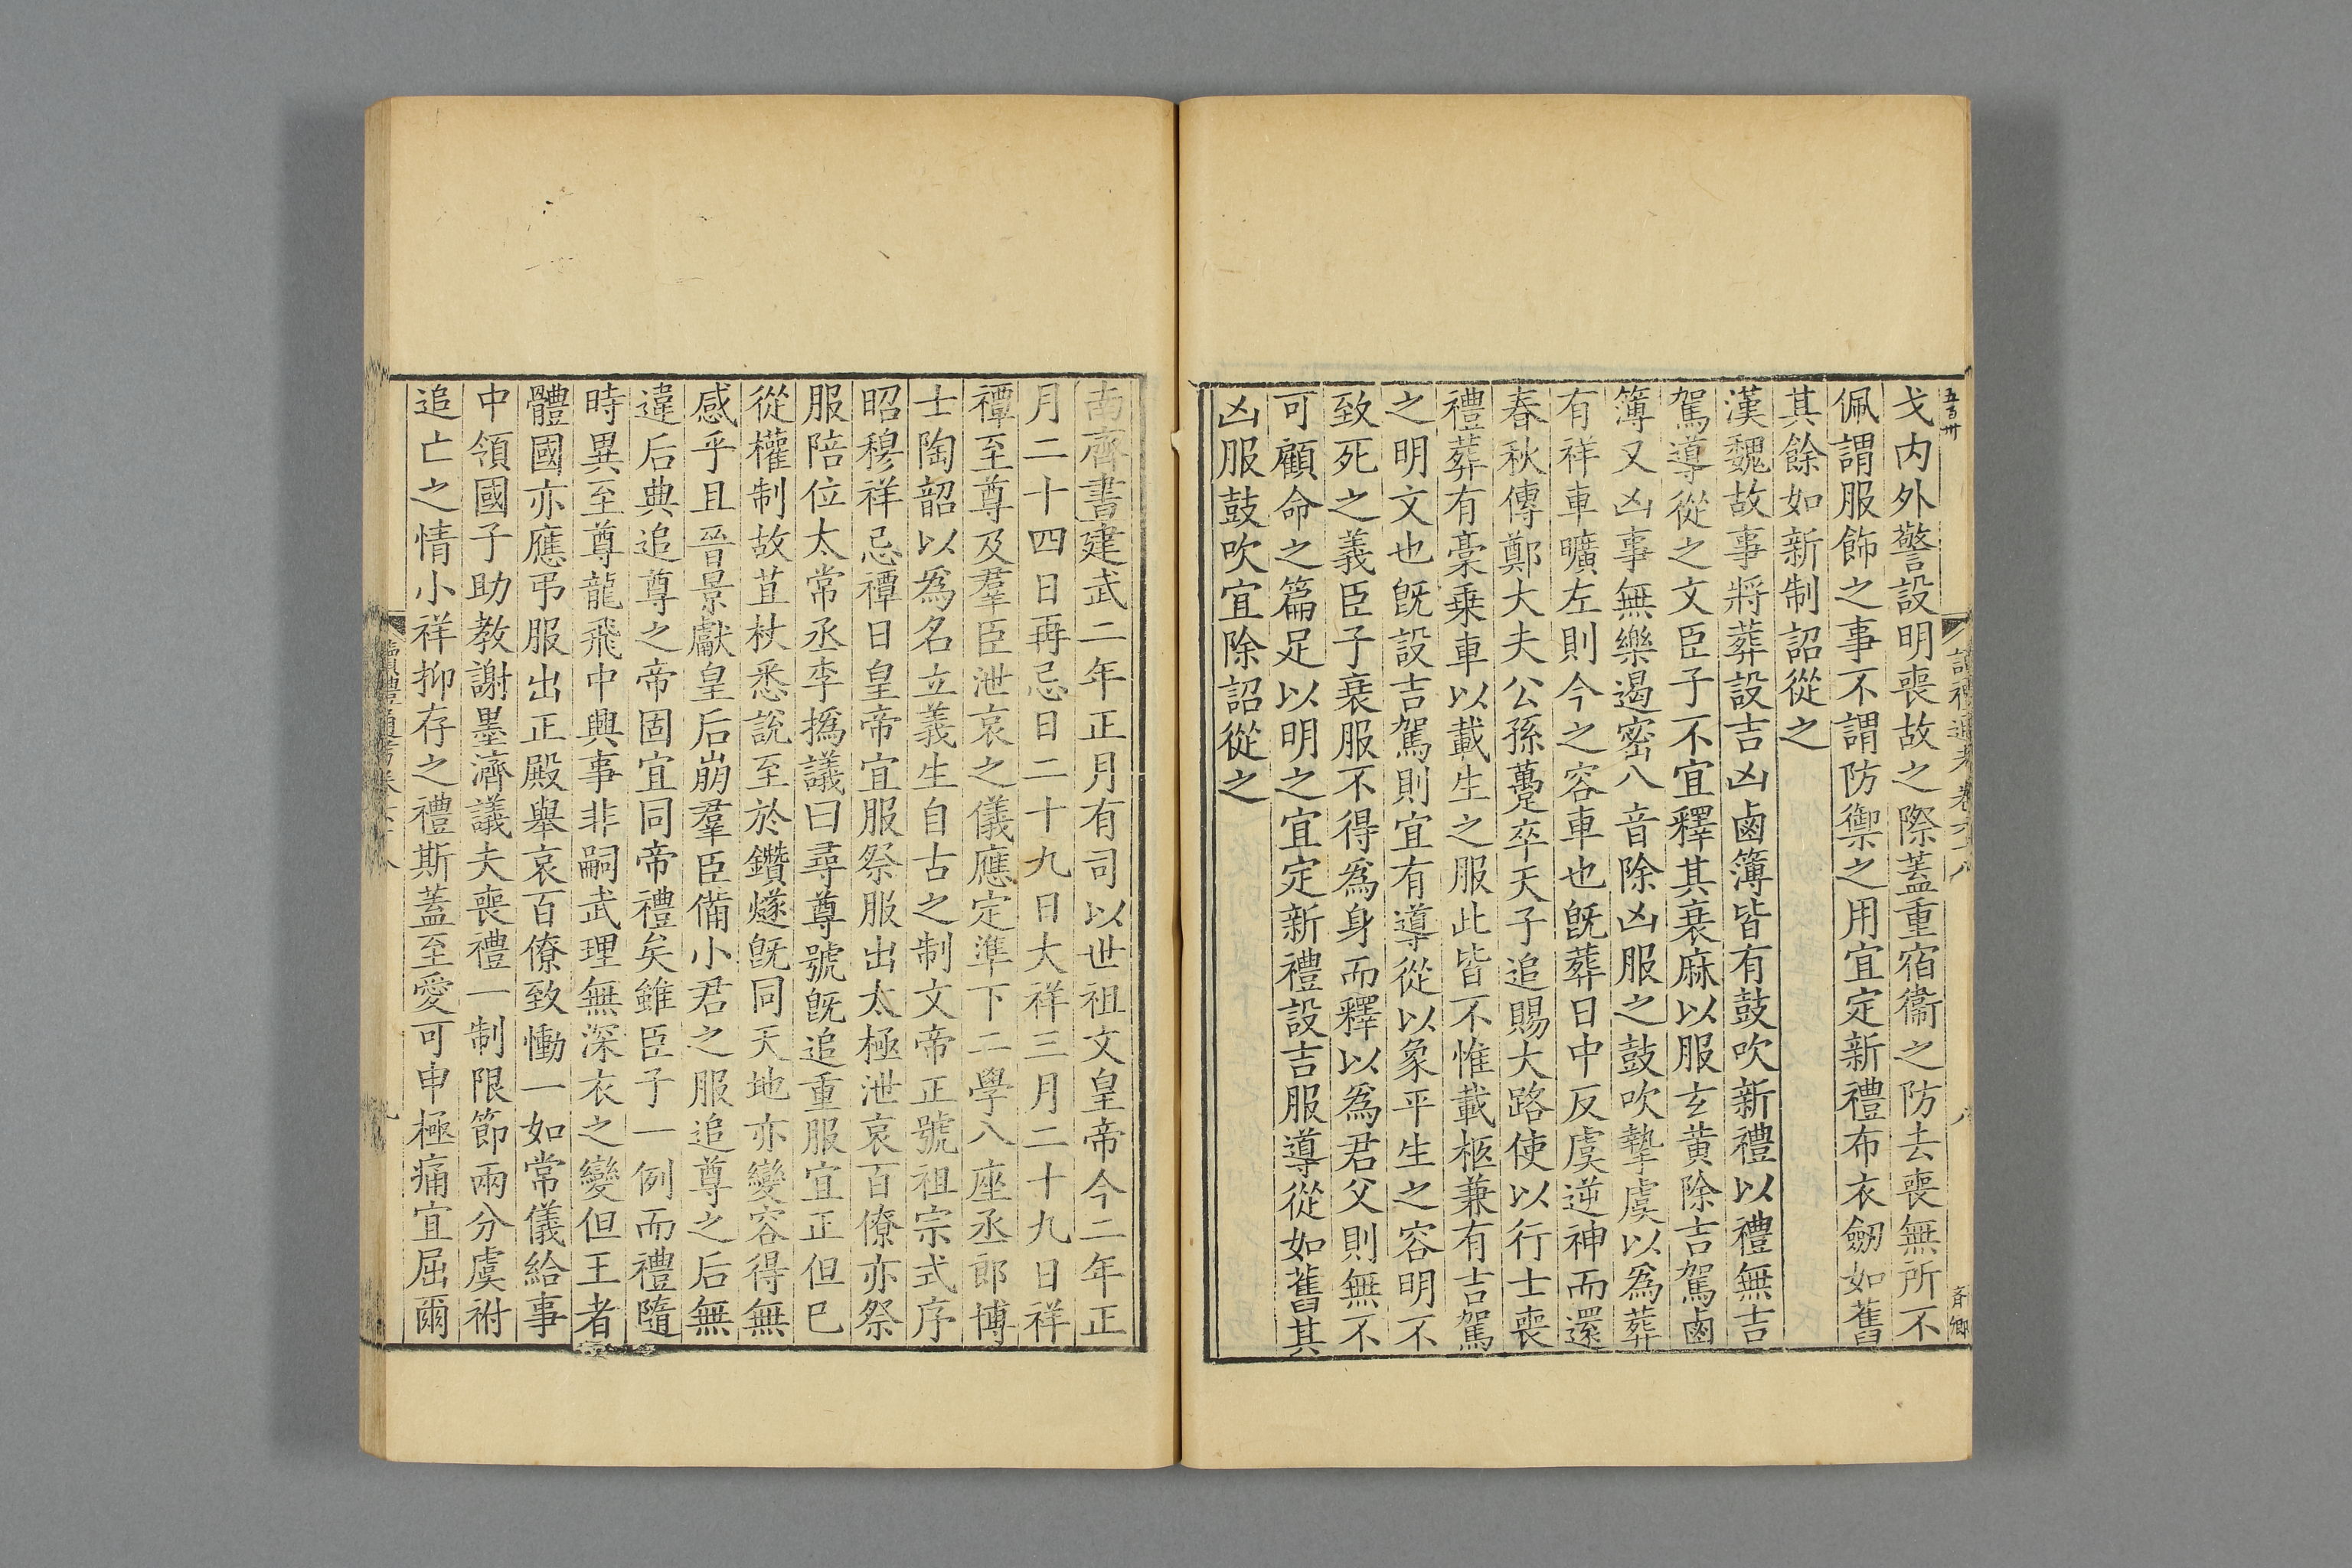 五百卅
戈内外警設明喪故之際蓋重宿衞之防去喪無所不
佩謂服飾之事不謂防禦之用宜定新禮布衣劒如舊
其餘如新制詔從之
漢魏故事將葬設吉凶鹵簿皆有鼓吹新禮以禮無吉
駕導從之文臣子不宜釋其衰麻以服玄黄除吉駕鹵
簿又凶事無樂遏密八音除凶服之鼓吹摯虞以爲葬
有祥車曠左則今之容車也旣葬日中反虞逆神而還
春秋傳鄭大夫公孫蠆卒天子追賜大路使以行士喪
禮葬有稾乗車以載生之服此皆不惟載柩兼有吉駕
之明文也旣設吉駕則宜有導從以象平生之容明不
致死之義臣子衰服不得爲身而釋以爲君父則無不
可顧命之篇足以明之宜定新禮設吉服導從如舊其
凶服鼓吹宜除詔從之
南齊書建武二年正月有司以世祖文皇帝今二年正
月二十四日再忌日二十九日大祥三月二十九日祥
禫至尊及羣臣泄哀之儀應定準下二學八座丞郎博
士陶韶以爲名立義生自古之制文帝正號祖宗式序
昭穆祥忌禫日皇帝宜服祭服出太極泄哀百僚亦祭
服陪位太常丞李撝議曰尋尊號旣追重服宜正但已
從權制故苴杖悉說至於鑽燧旣同天地亦變容得無
感乎且晉景獻皇后崩羣臣備小君之服追尊之后無
違后典追尊之帝固宜同帝禮矣雖臣子一例而禮隨
時異至尊龍飛中興事非嗣武理無深衣之變但王者
體國亦應弔服出正殿舉哀百僚致慟一如常儀給事
中領國子助教謝曇濟議夫喪禮一制限節兩分虞祔
追亡之情小祥抑存之禮斯蓋至愛可申極痛宜屈爾